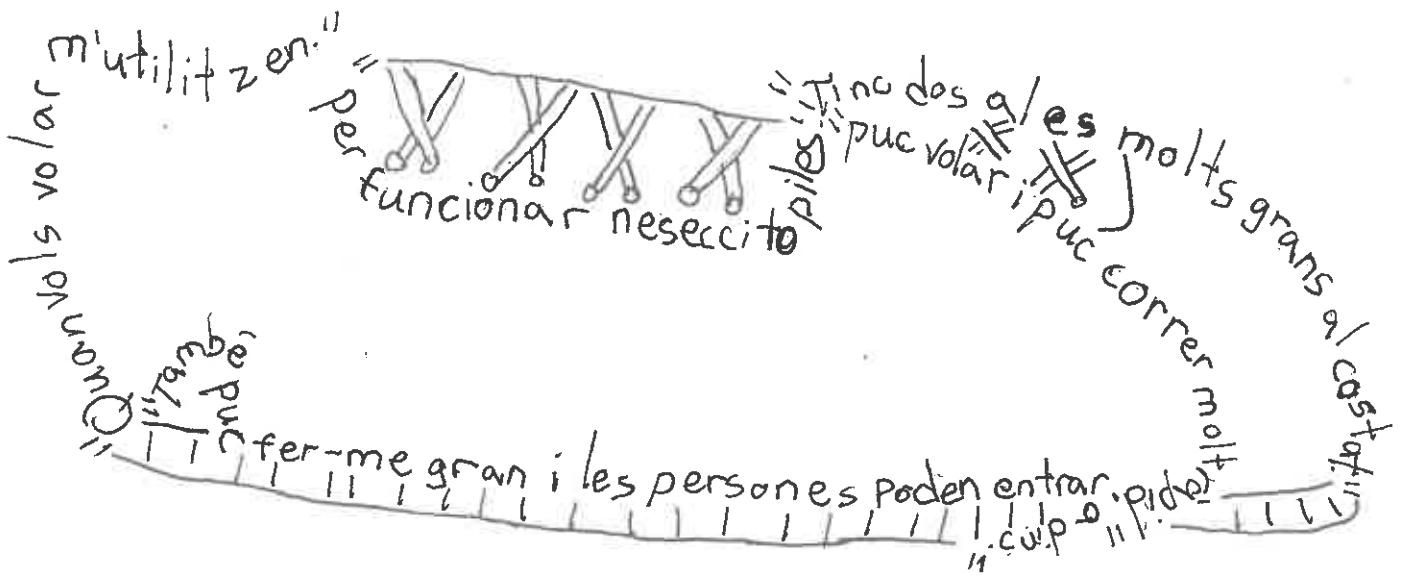 "Quan vols volar m'utilitzen."
"per funcionar neseccito piles."
"Tinc dos ales molts grans al costat."
"puc volar i puc correr molt ràpid"
"També puc fer-me gran i les persones poden entrar a dins."